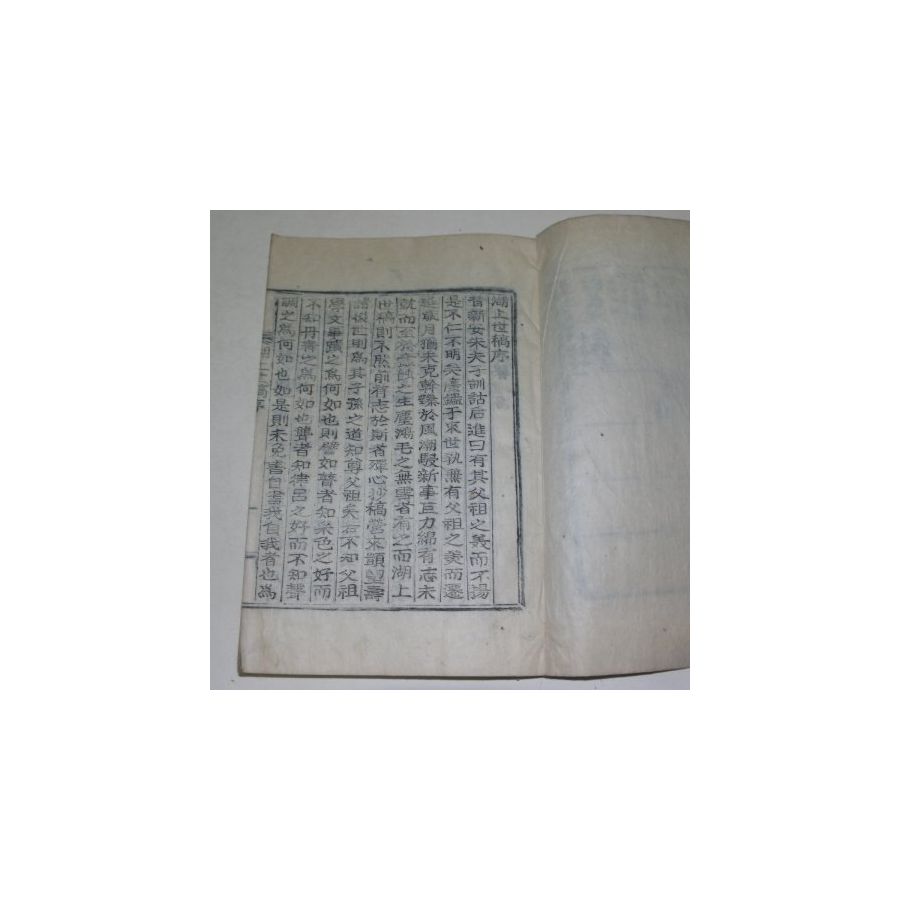 湖上世稿序
昔新安朱夫子訓詁后進曰有其父祖之美而不揚
是不仁不明矣噫鑑乎衰世孰無有父祖之美而遷
延歲月猶未克幹臻於風潮駸新事巨力綿有志未
就而至於之生塵鴻毛之無雲者有之而湖上
世稿則不然前有志於斯者殫心抄稿營來頭壽
諸後世則爲其子孫之道知尊父祖矣若不知父祖
學文事蹟之爲何如也則譬如瞽者知采色之好而
不知丹靑之爲何如也聾者知律呂之好而不知聲
調之爲何如也如是則未免書自書我自我者也爲